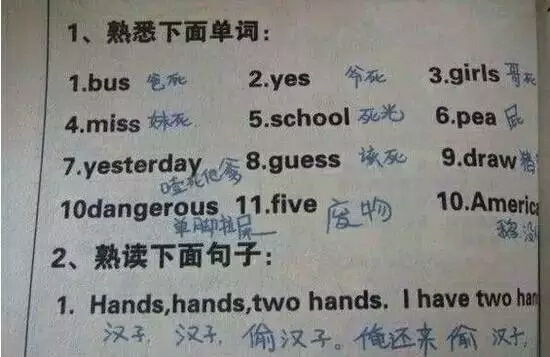 1、熟悉下面单词：
1.bus 爸死 2.yes 爷死 3.girls 哥死
4.miss 妹死 5.school 死光 6.pea 屁
7.yesterday 噎死他爹 8.guess 该死 9.draw 猪
10dangerous 单脚拉屎 11.five 废物 10.America
2、熟读下面句子：
1. Hands,hands,two hands. I have two han
汉子，汉子，偷汉子。俺还来偷汉子，